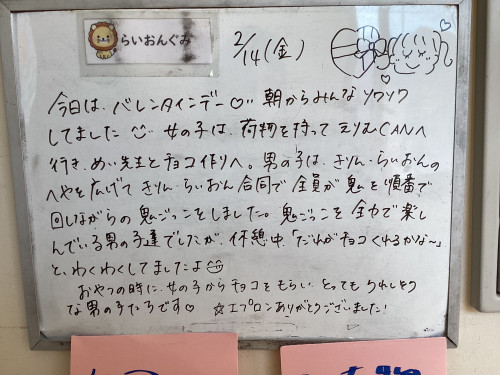 らいおんぐみ
2/14(金)
今日は、バレンタインデー♡‥ 朝からみんなソワソワ
してました 女の子は、荷物を持って えりむCANへ
行き、めい先生とチョコ作りへ。男の子は、きりん・らいおんの
へやを広げて きりん・らいおん合同で 全員が鬼を順番で
回しながらの鬼ごっこをしました。鬼ごっこを全力で楽し
んでいる男の子達でしたが、休憩中、「だれがチョコくれるかな〜」
と、わくわくしてましたよ
おやつの時に、女の子からチョコをもらい、とっても うれしそう
な男の子たちです♡ ☆エプロンありがとうございました!